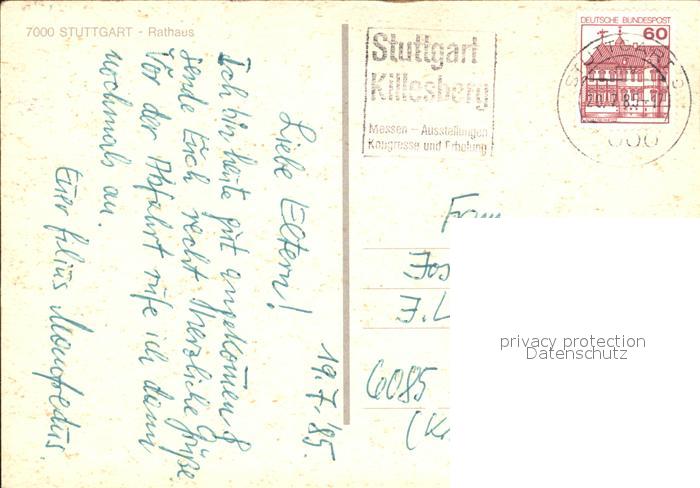 7000 STUTTGART - Rathaus
Stuttgart
Killesberg
Messen – Ausstellungen
Kongresse und Erholung
DEUTSCHE BUNDESPOST
60
STUTTGART
19.7.'85.
Liebe Eltern!
Ich bin heute gut angekommen &
sende Euch recht herzliche Grüße.
Vor der Abfahrt rufe ich dann
nochmals an.
Euer filius Manfredus.
6085
privacy protection
Datenschutz